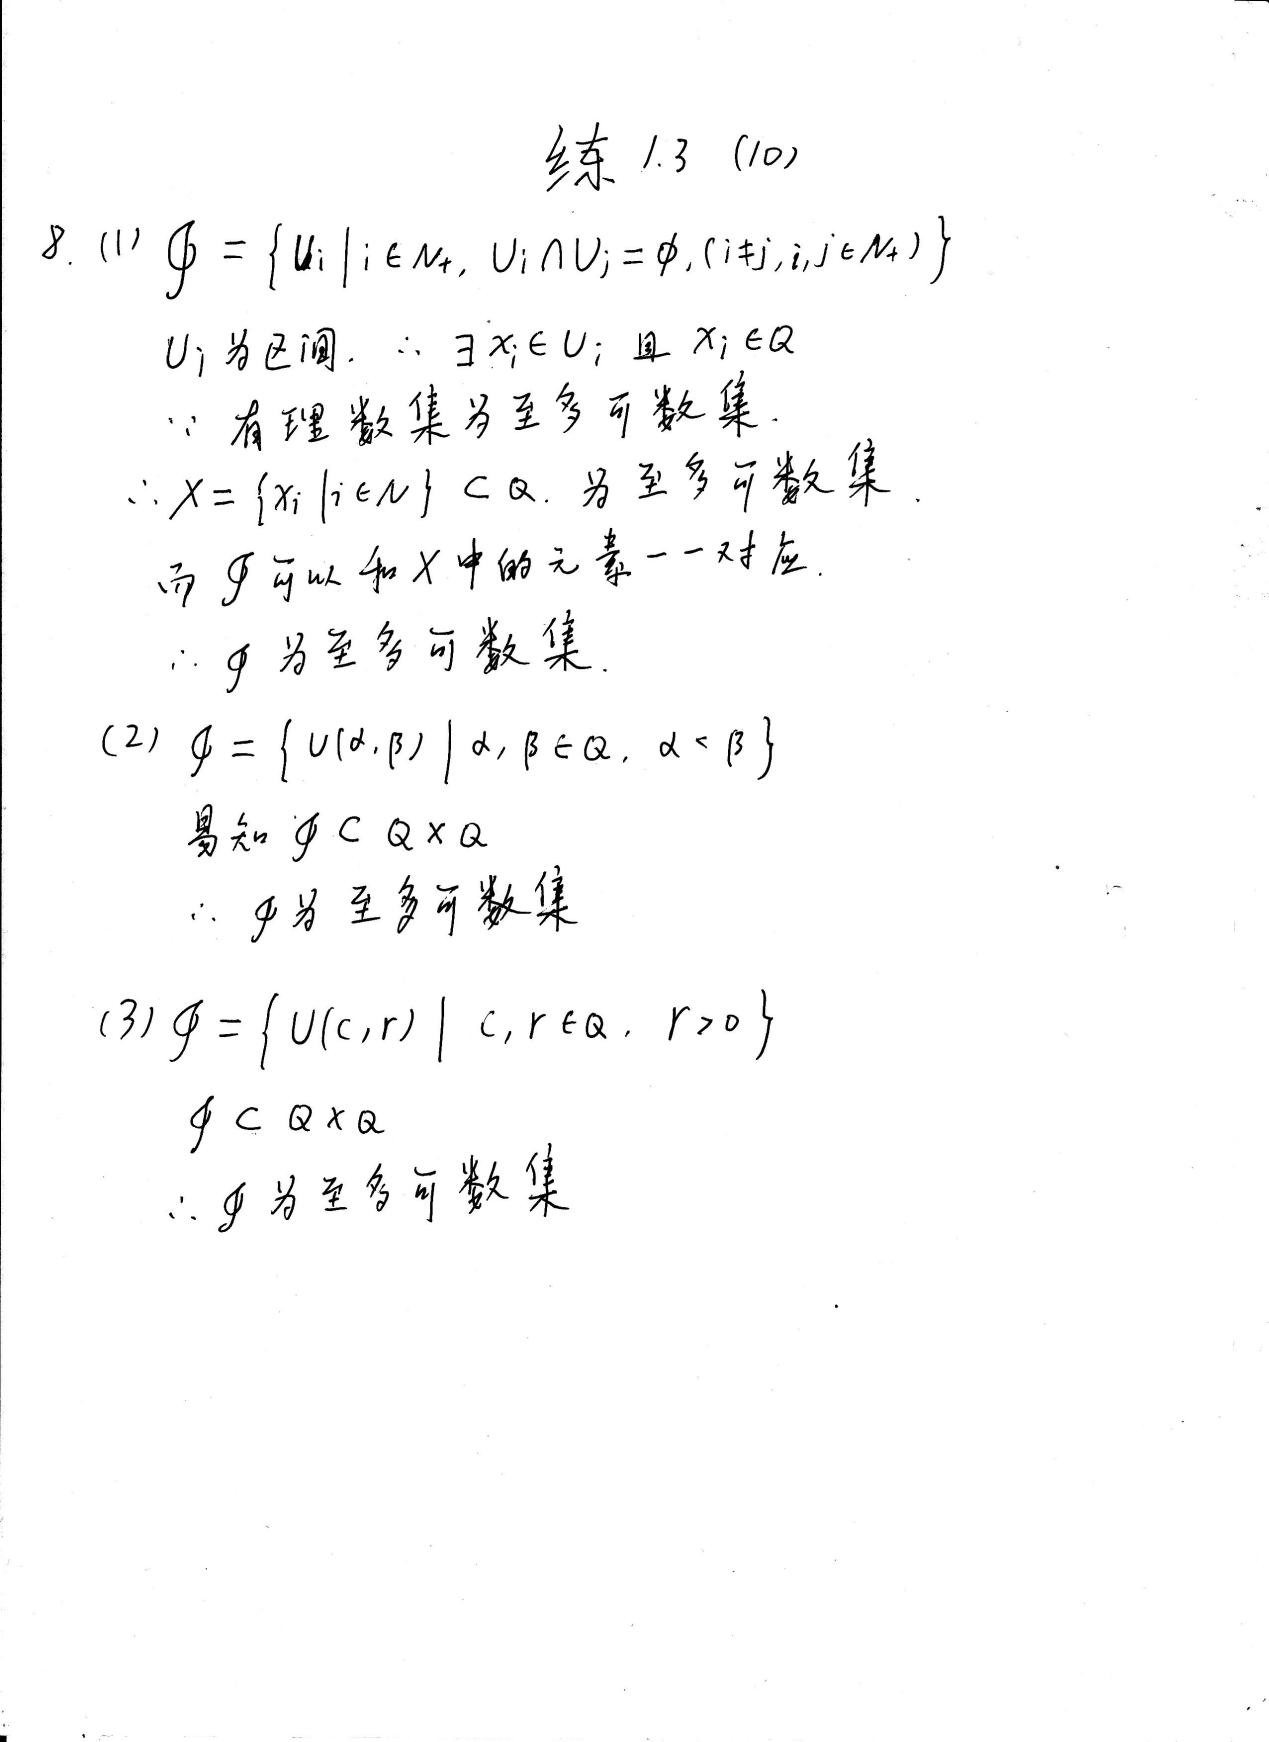 练 1.3 (10)
8. (1) ϕ = {Ui | i∈N+, Ui∩Uj=ϕ, (i≠j, i,j∈N+)}
Ui为区间. ∴ ∃xi∈Ui 且 xi∈Q
∵ 有理数集为至多可数集.
∴ X={xi|i∈N} ⊂ Q. 为至多可数集.
而 ϕ 可以和X中的元素一一对应.
∴ ϕ 为至多可数集.
(2) ϕ = {U(α,β) | α, β∈Q, α<β}
易知 ϕ ⊂ Q×Q
∴ ϕ为至多可数集
(3) ϕ = {U(c,r) | c, r∈Q, r>0}
ϕ ⊂ Q×Q
∴ ϕ为至多可数集